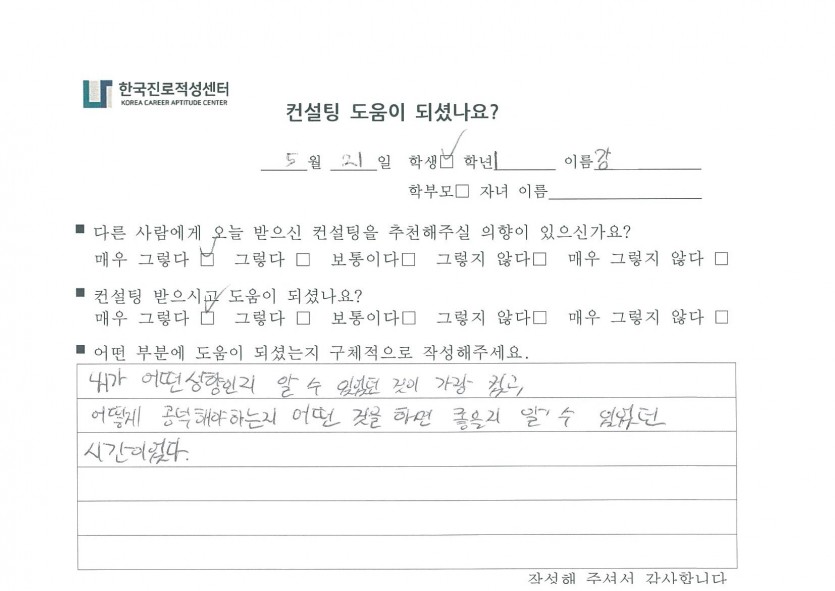 한국진로적성센터
KOREA CAREER APTITUDE CENTER
컨설팅 도움이 되셨나요?
5월 21일 학생☑ 학년 1 이름 강
학부모□ 자녀 이름
■ 다른 사람에게 오늘 받으신 컨설팅을 추천해주실 의향이 있으신가요?
매우 그렇다 ☑ 그렇다 □ 보통이다□ 그렇지 않다□ 매우 그렇지 않다 □
■ 컨설팅 받으시고 도움이 되셨나요?
매우 그렇다 ☑ 그렇다 □ 보통이다□ 그렇지 않다□ 매우 그렇지 않다 □
■ 어떤 부분에 도움이 되셨는지 구체적으로 작성해주세요.
내가 어떤성향인지 알 수 있었던 것이 가장 컸고,
어떻게 공부해야하는지 어떤 것을 하면 좋을지 알 수 있었던
시간이었다.
작성해 주셔서 감사합니다